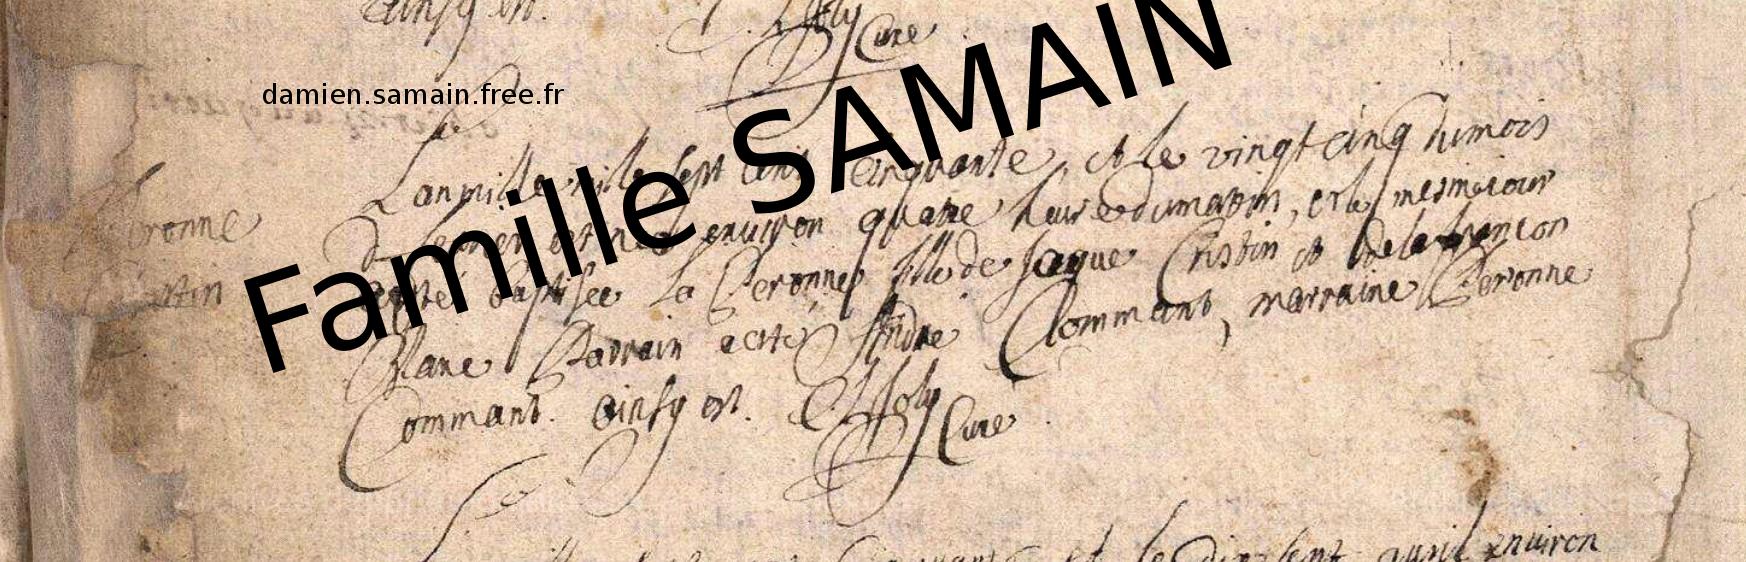 ainsy est. Cure
damien.samain.free.fr
Famille SAMAIN
Peronne
Cristin
L'an mille mille sept cent cinquante, et le vingt cinq du mois
de est née environ quatre heure du matin, et la mesme jour
esté baptisee la Peronne fille de Jaque Cristin et de la françon
Blanc Parrain a esté Andre Command, marraine Peronne
Command. ainsy est. Joly Cure
et le dix sept avril environ